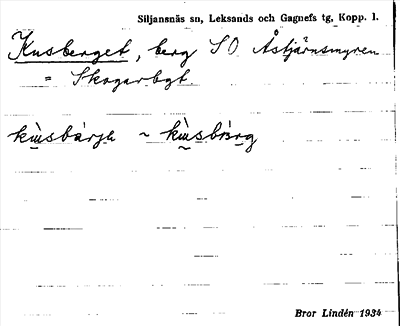 Siljansnäs sn, Leksands och Gagnefs tg, Kopp. l.
Kusberget, berg SO Åstjärnsmyren
= Skogarbgt.
kùsbàrja ~ kùsbàrg
Bror Lindén 1934